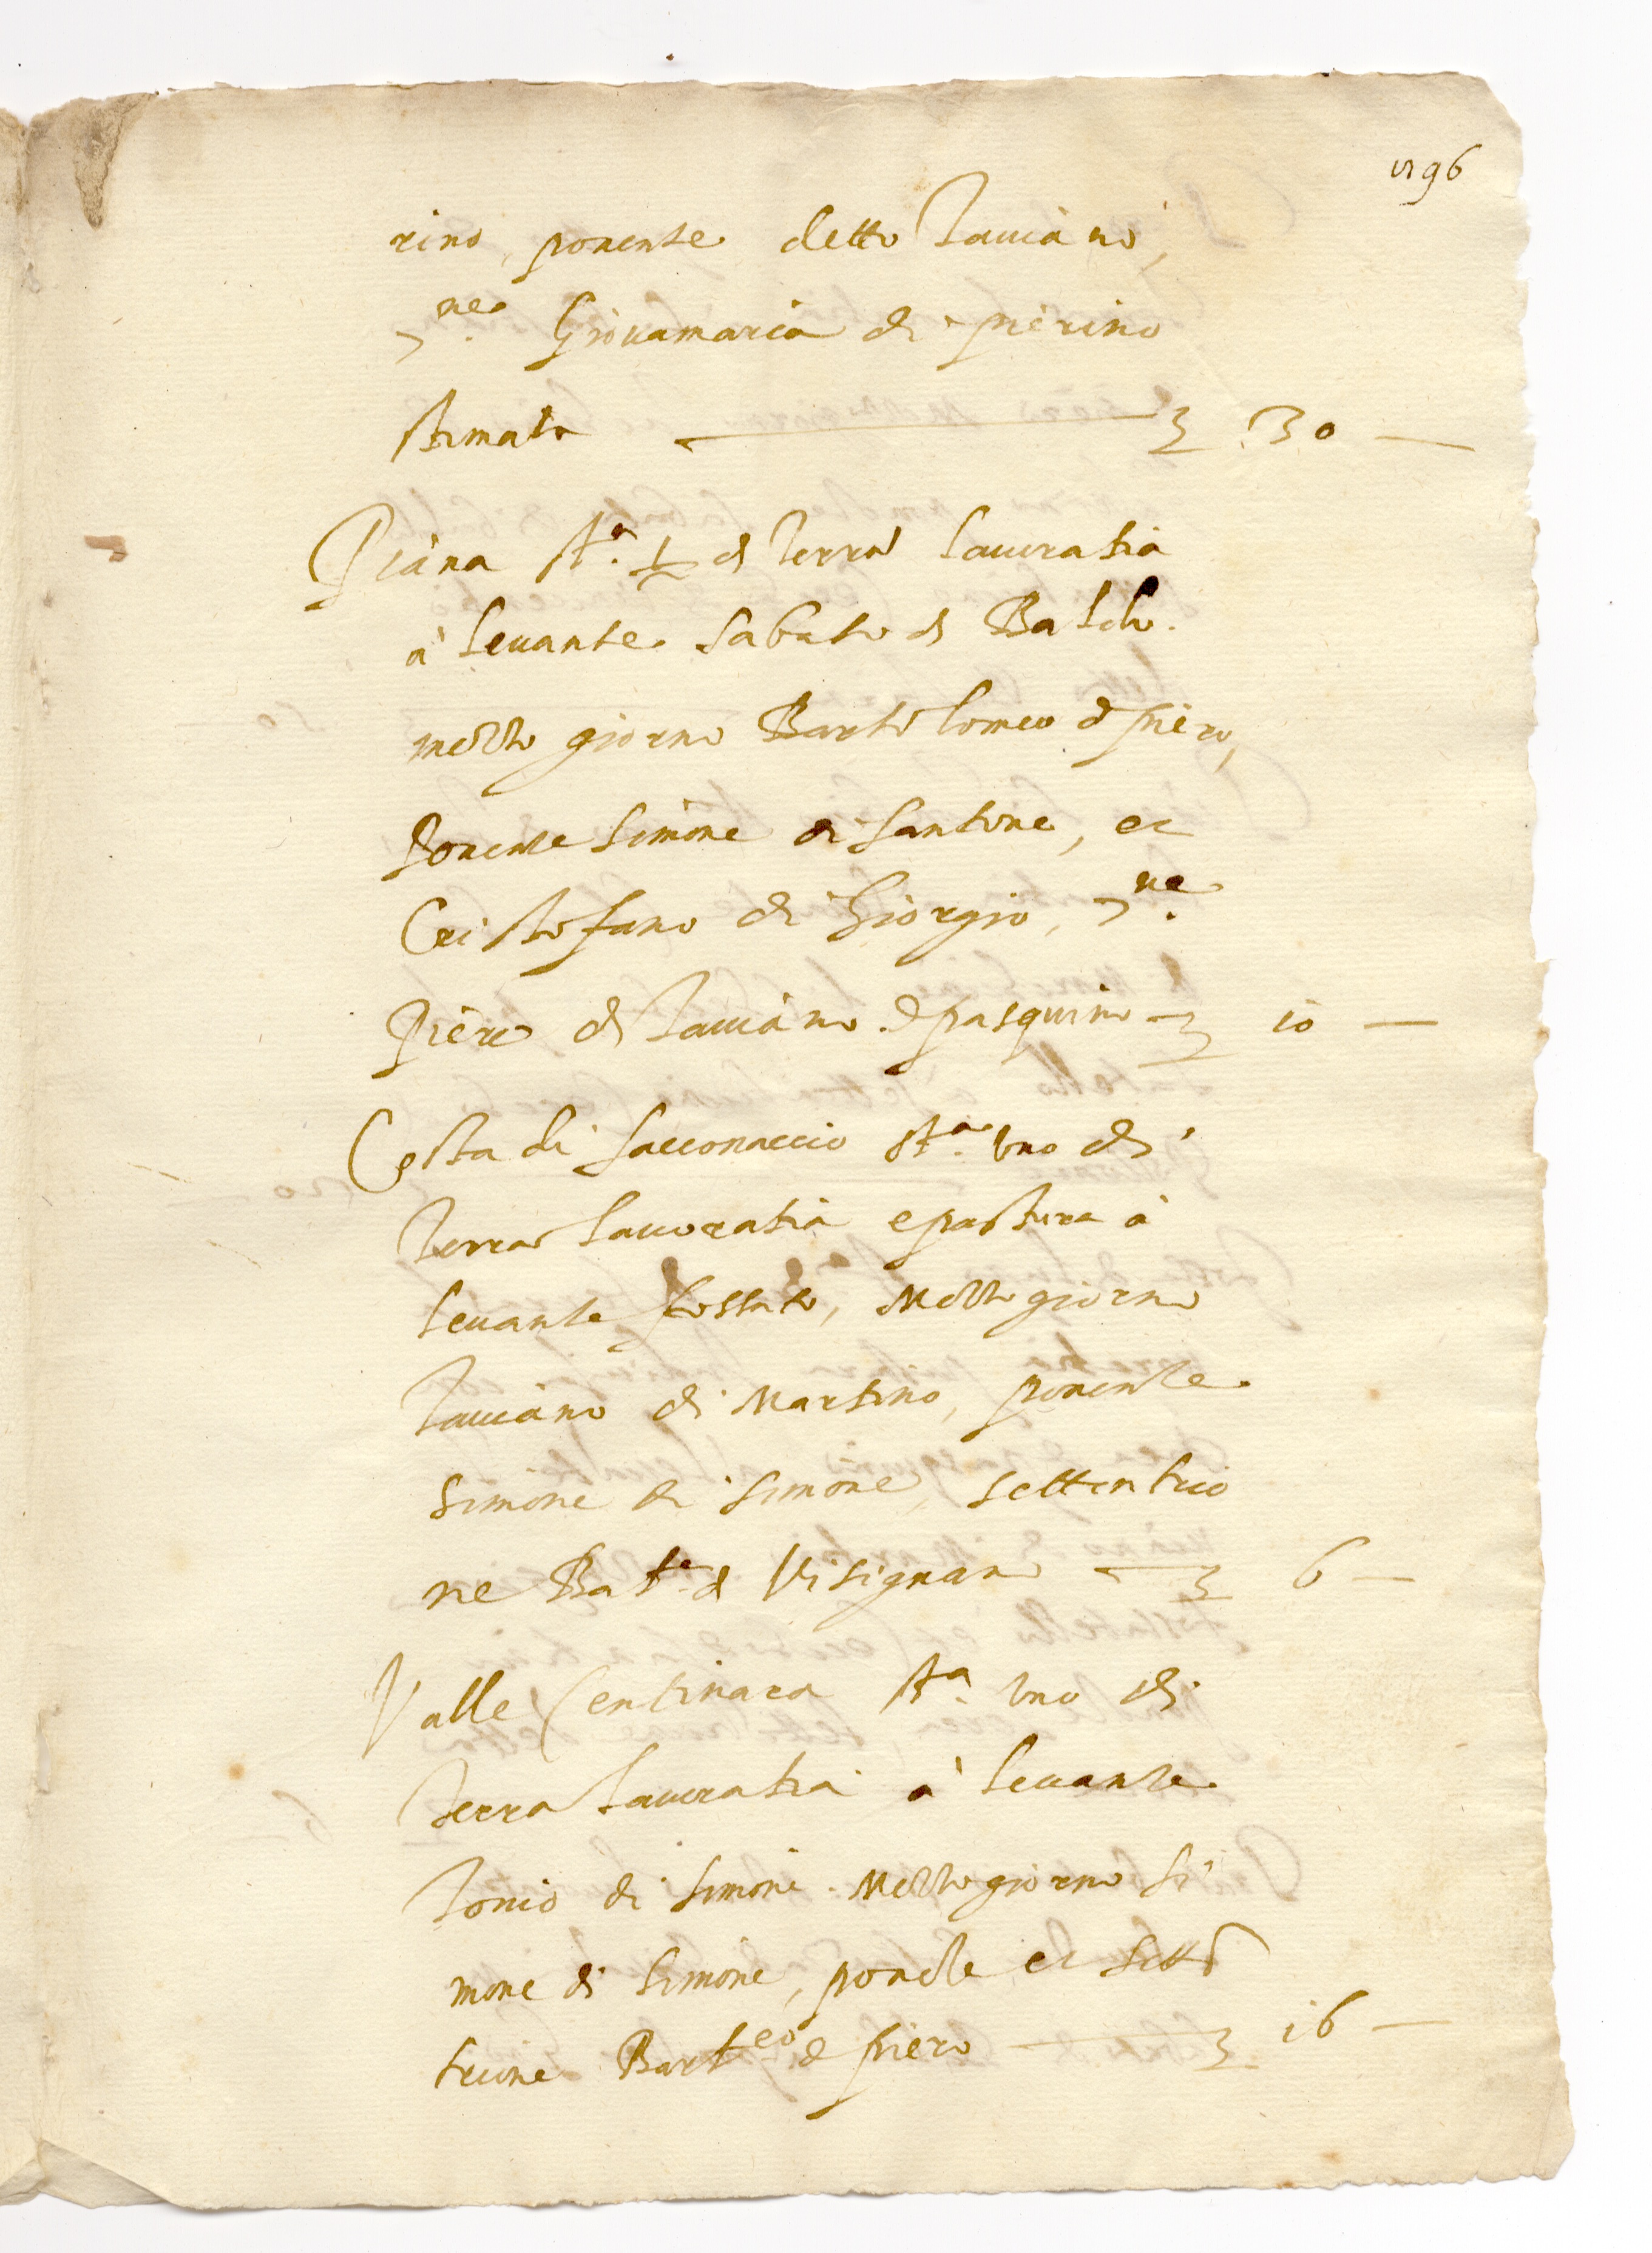 196
rino, ponente detto Tauiano,
7ne. Giouamaria di pierino
stimata ∑ 30 —
Piana sta. ½ di terra lauoratia
à leuante Sabato di Baldo.
mezzo giorno Bartolomeo d piero,
Ponente Simone di Santone, et
Cristofano di Giorgio, 7ne.
Piero di Tauiano d pasquino ∑ 10 —
Costa di Sacconaccio sta. uno di
terra lauoratia e pastura à
leuante fossato, Mezzo giorno
Tauiano di Martino, ponente
Simone di Simone, settentrio
ne Bata. d Visignano ∑ 6 —
Valle Centinara sta. uno di
terra lauoratia à leuante
Tonio di Simone. Mezzo giorno Si
mone di Simone, ponēte et settē
trione Barteo. d piero ∑ 16 —